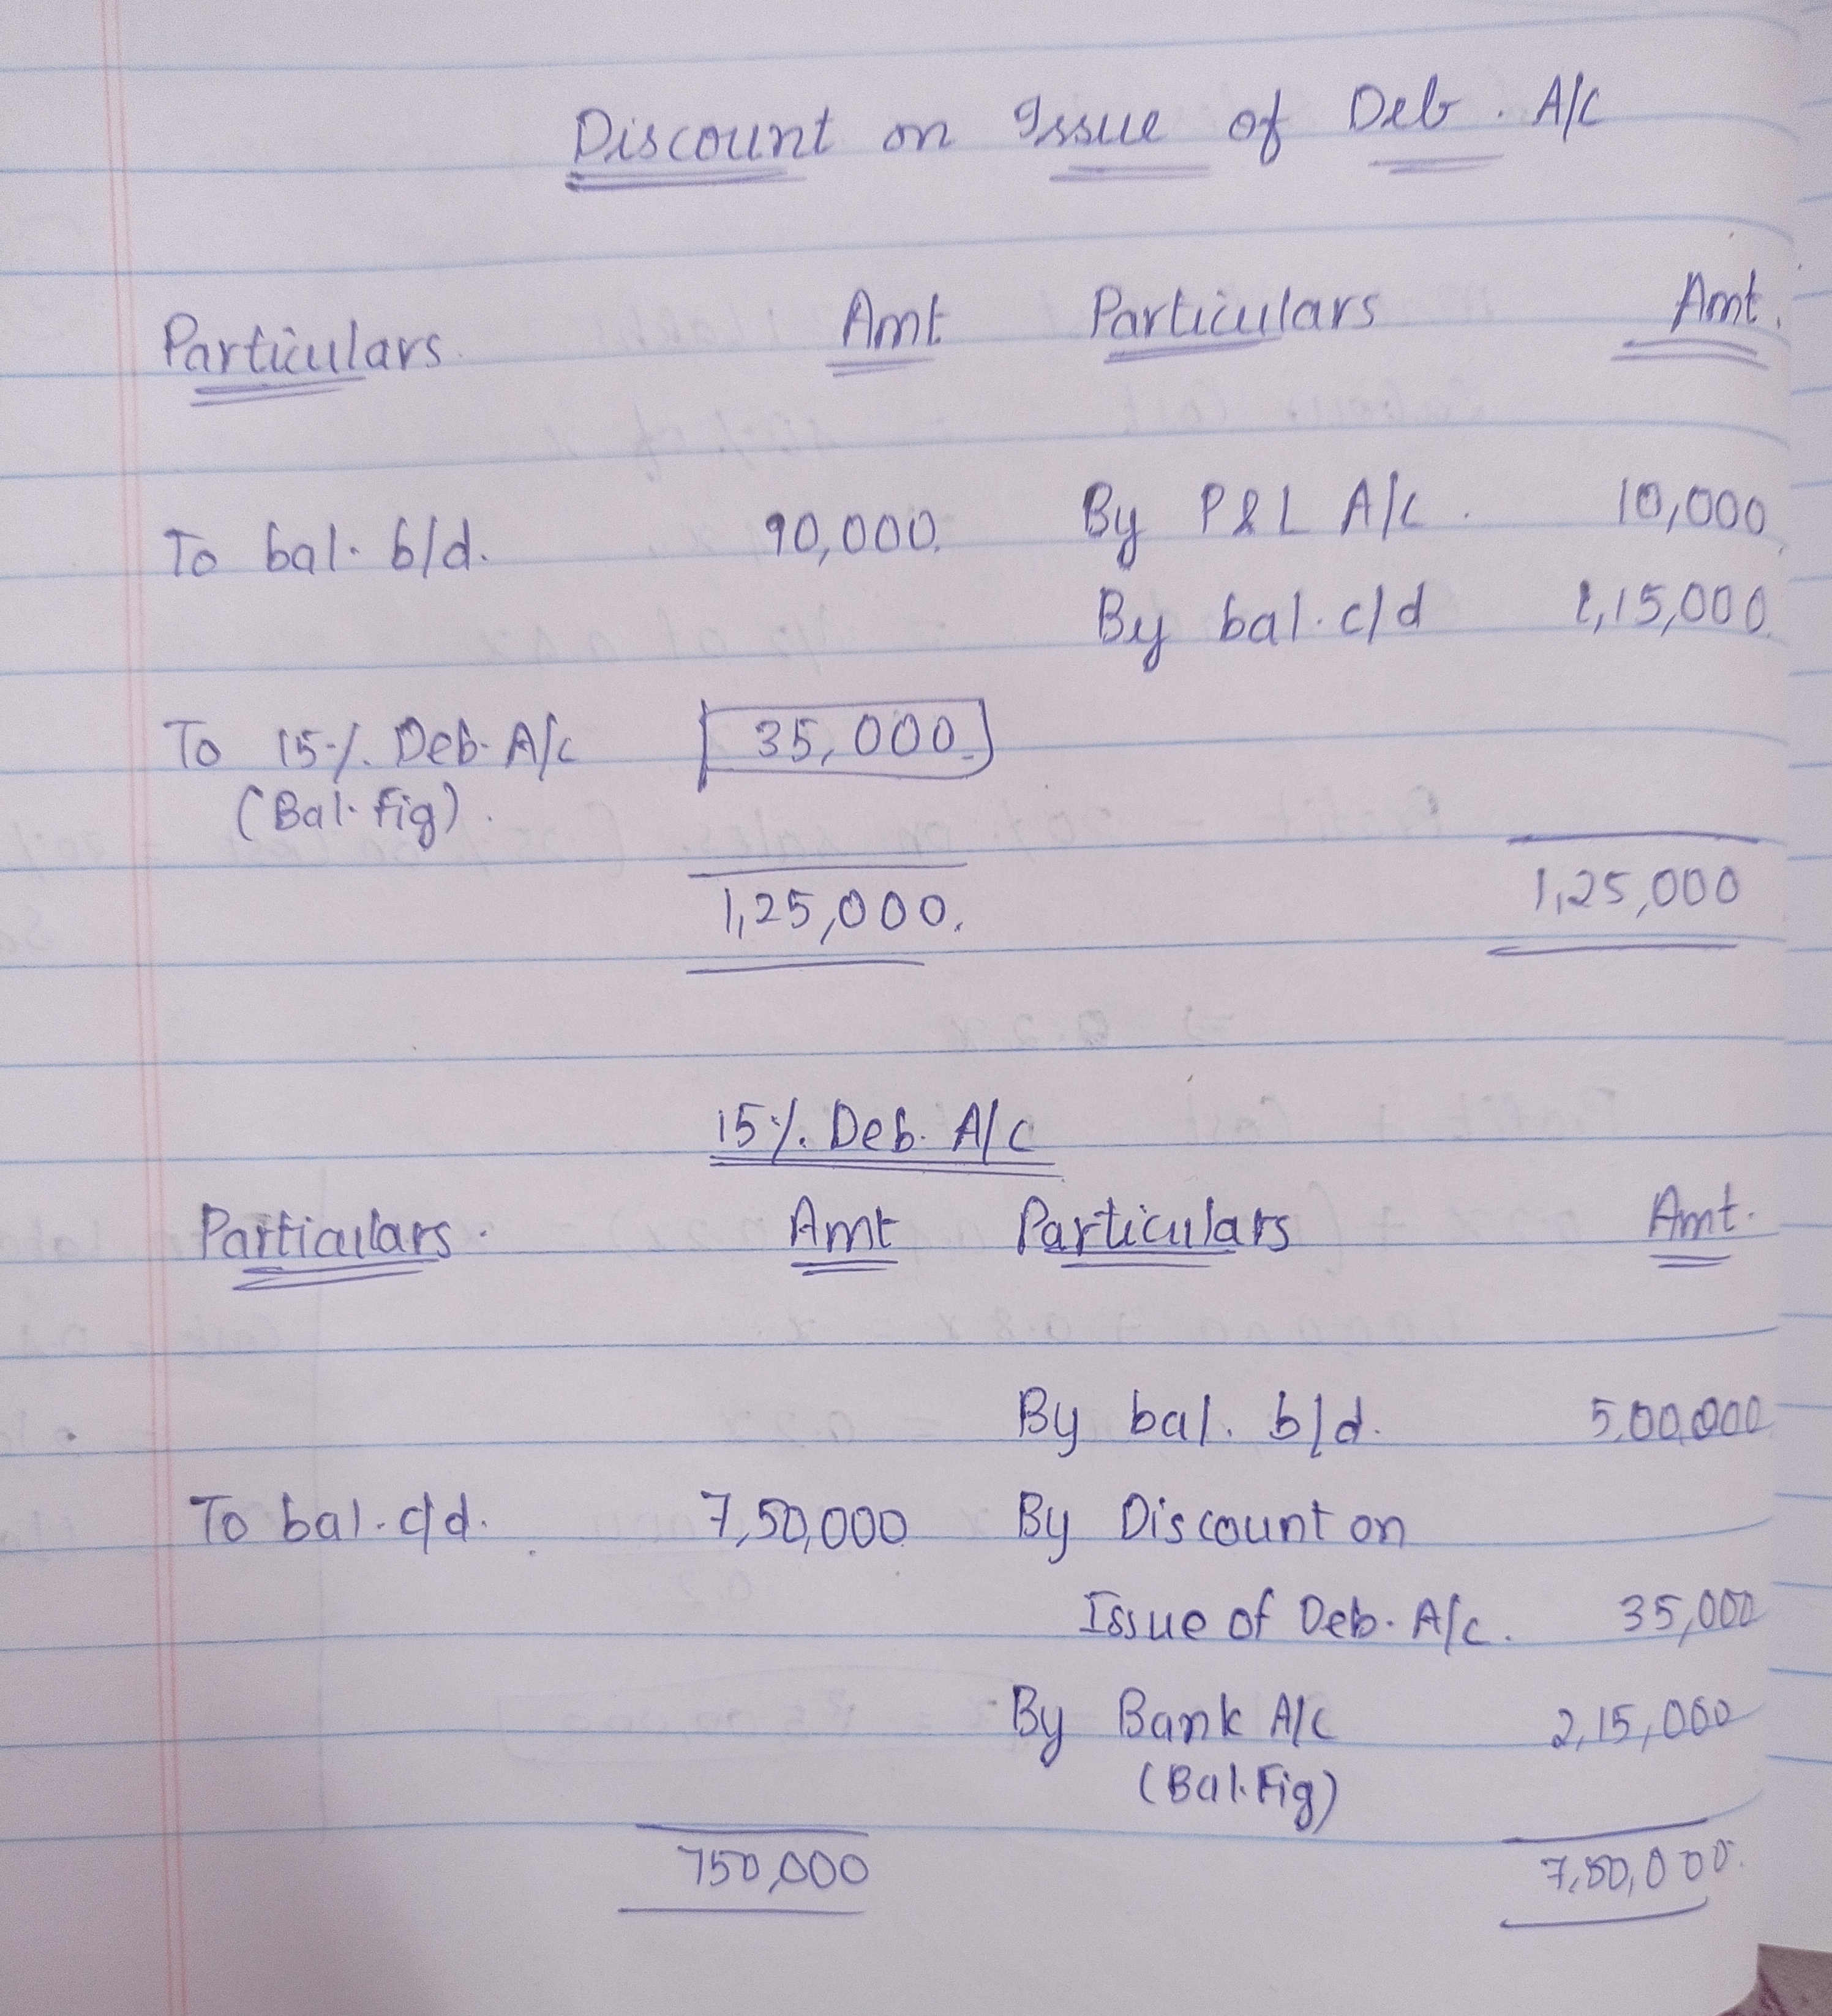 Discount on Issue of Deb. A/C
Particulars. Amt Particulars Amt.
To bal. b/d. 90,000. By P&L A/c. 10,000
By bal. c/d 1,15,000.
To 15% Deb. A/c 35,000.
(Bal. fig).
1,25,000. 1,25,000
15% Deb. A/C
Particulars. Amt Particulars Amt.
By bal. b/d. 5,00,000
To bal. c/d. 7,50,000 By Discount on
Issue of Deb. A/c. 35,000
By Bank A/C 2,15,000
(Bal. Fig)
750,000 7,50,000.